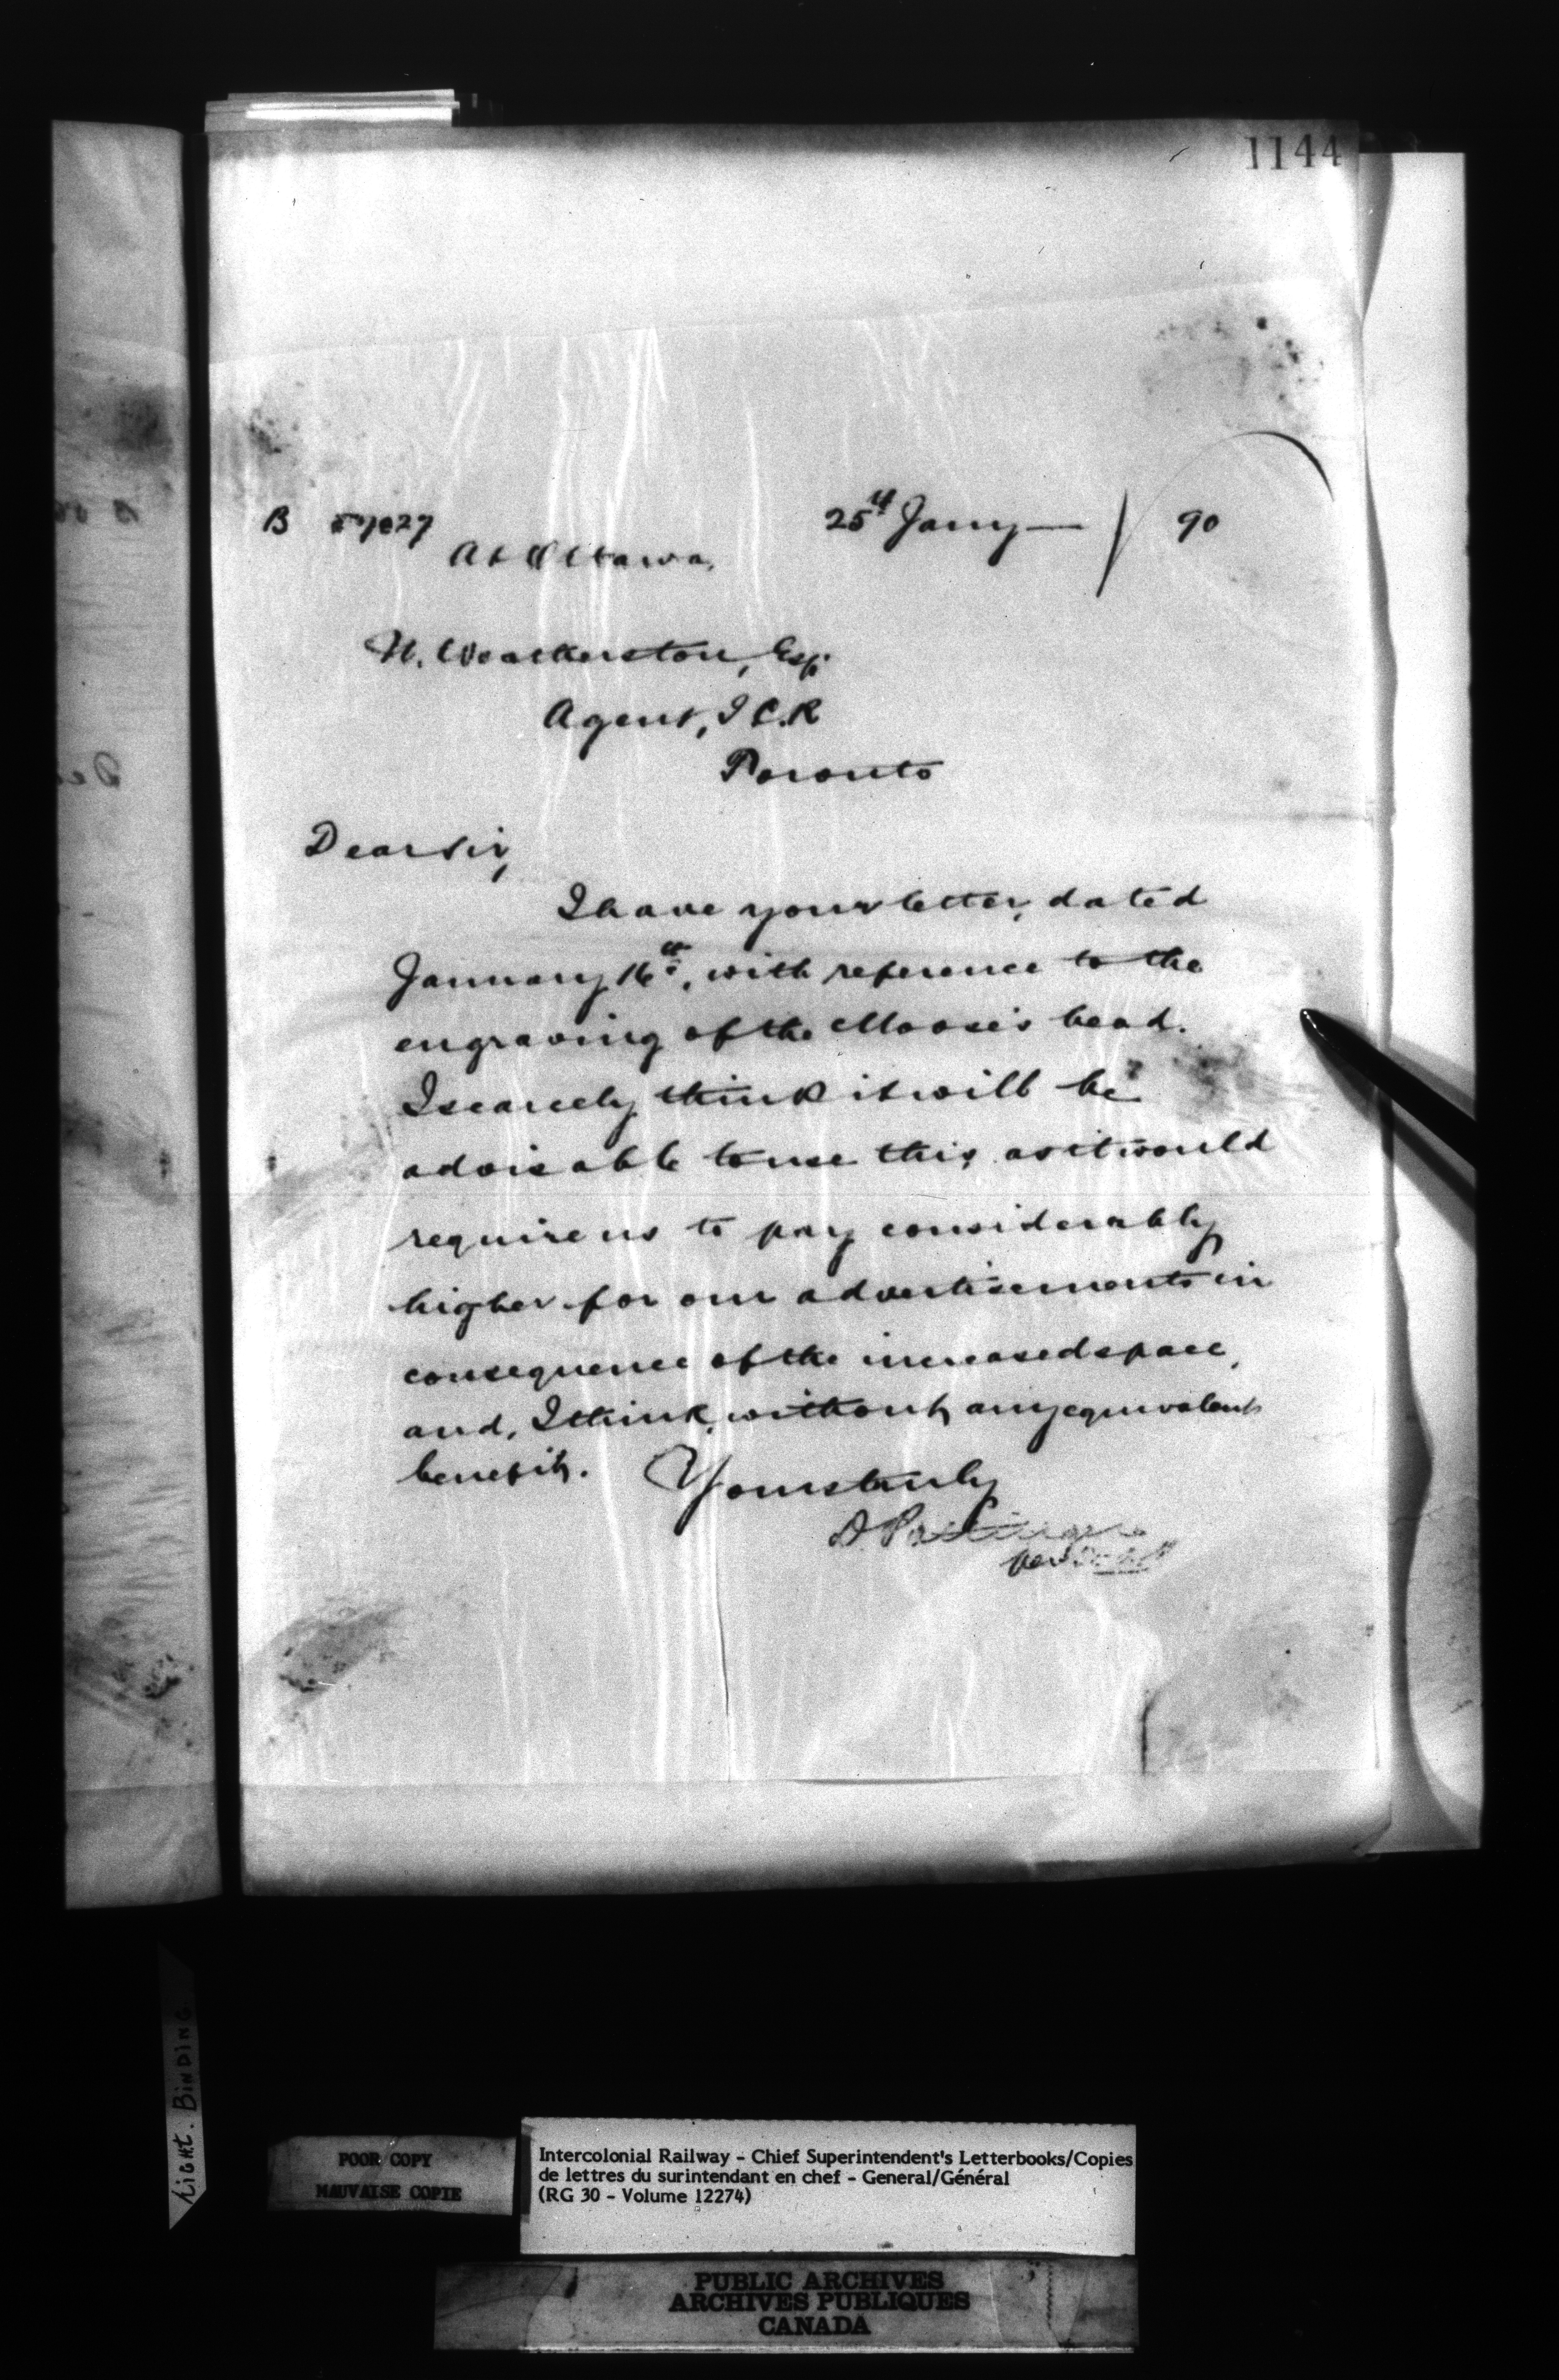 1144
B 25th Jany — / 90
At Ottawa,
N. Weatherston, Esq.
Agent, I C.R
Toronto
Dear Sir,
I have your letter, dated
January 16th, with reference to the
engraving of the Moose's head.
I scarcely think it will be
advisable to use this, as it would
require us to pay considerably
higher for our advertisements in
consequence of the increased space,
and, I think, without any equivalent
benefit.
Yours truly
D. Pottinger
per
Light. BINDING.
POOR COPY
MAUVAISE COPIE
Intercolonial Railway - Chief Superintendent's Letterbooks/Copies
de lettres du surintendant en chef - General/Général
(RG 30 - Volume 12274)
PUBLIC ARCHIVES
ARCHIVES PUBLIQUES
CANADA